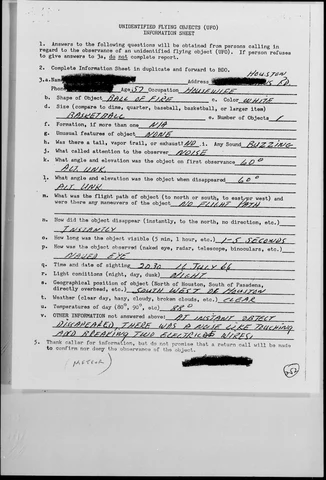 UNIDENTIFIED FLYING OBJECTS (UFO)
INFORMATION SHEET
1. Answers to the following questions will be obtained from persons calling in
regard to the observance of an unidentified flying object (UFO). If person refuses
to give answers to 3a, do not complete report.
2. Complete Information Sheet in duplicate and forward to BDO.
HOUSTON
3.a. Address RD
Phone Age 57 Occupation HOUSEWIFE
b. Shape of Object BALL OF FIRE c. Color WHITE
d. Size (compare to dime, quarter, baseball, basketball, or larger item)
BASKETBALL e. Number of Objects 1
f. Formation, if more than one N/A
g. Unusual features of object NONE
h. Was there a tail, vapor trail, or exhaust? NO i. Any Sound BUZZING
j. What called attention to the observer NOISE
k. What angle and elevation was the object on first observance 60°
ALT. UNK
l. What angle and elevation was the object when disappeared 60°
ALT UNK
m. What was the flight path of object (to north or south, to east or west) and
were there any maneuvers of the object NO FLIGHT PATH
n. How did the object disappear (instantly, to the north, no direction, etc.)
INSTANTLY
o. How long was the object visible (5 min, 1 hour, etc.) 1-5 SECONDS
p. How was the object observed (naked eye, radar, telescope, binoculars, etc.)
NAKED EYE
q. Time and date of sighting 2030 16 JULY 66
r. Light conditions (night, day, dusk) NIGHT
s. Geographical position of object (North of Houston, South of Pasadena,
directly overhead, etc.) SOUTH WEST OF HOUSTON
t. Weather (clear day, hazy, cloudy, broken clouds, etc.) CLEAR
u. Temperatures of day (80°, 90°, etc.) 88°
v. OTHER INFORMATION not answered above: AT INSTANT OBJECT
DISAPEARED THERE WAS A NOISE LIKE TOUCHING
AND BREAKING TWO ELECTRICAL WIRES.
3. Thank caller for information, but do not promise that a return call will be made
to confirm nor deny the observance of the object.
(METEOR)